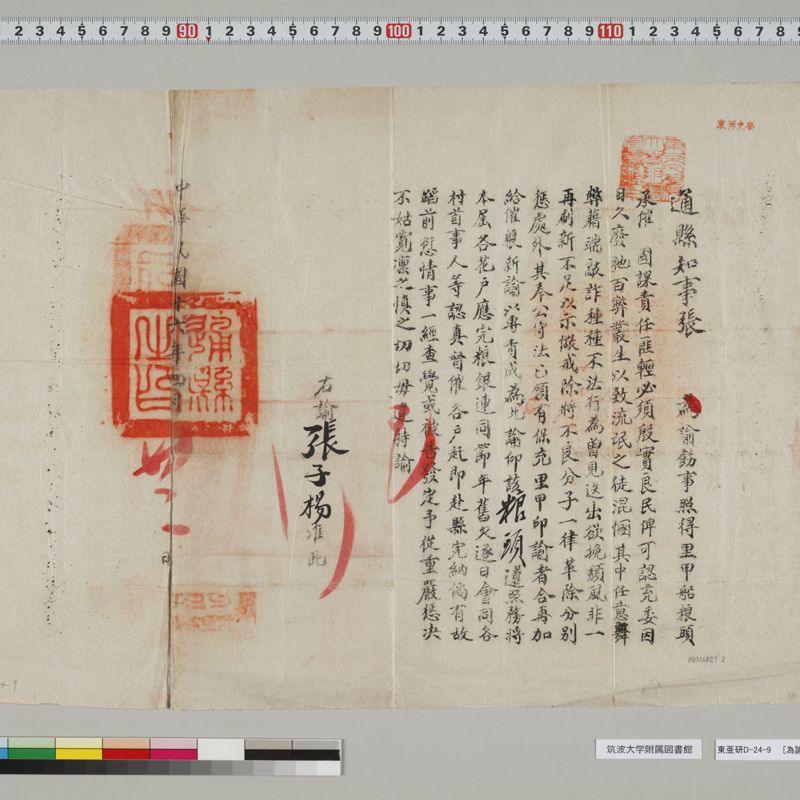 東洋史學
通縣知事張　為諭飭事照得里甲船粮頭
承催　國課責任匪輕必須殷實良民俾可認充委因
日久廢弛百弊叢生以致流氓之徒混個其中任意舞
弊藉端敲詐種種不法行為曾見迭出欲挽頹風非一
再刷新不足以示儆戒除將不良分子一律革除分別
懲處外其奉公守法已領有保充里甲印諭者合再加
給催粮新諭以專責成為此諭仰該粮頭遵照務將
本屆各花戶應完粮銀連同節年舊欠逐日會同各
村首事人等認真督催各戶赶即赴縣完納倘有故
蹈前愆情事一經查覺或被告發定予從重嚴懲决
不姑寬凛之慎之切切毋違持諭
右諭張子楊准此
中華民國十六年四月廿二日
通縣之印
04016927 2
筑波大学附属図書館
東亜研D-24-9　[為諭
2 3 4 5 6 7 8 9 90 1 2 3 4 5 6 7 8 9 100 1 2 3 4 5 6 7 8 9 110 1 2 3 4 5 6 7 8